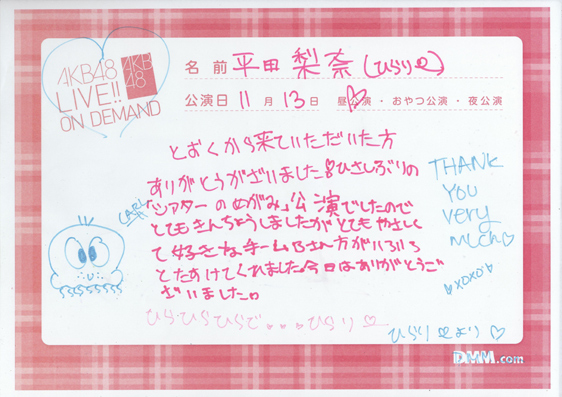 AKB48
LIVE!!
ON DEMAND
AKB
48
名前 平田梨奈(ひらりー)
公演日 11月 13日 昼公演・おやつ公演・夜公演
とおくから来ていただいた方
ありがとうございました!ひさしぶりの
「シアターのめがみ」公演でしたので
とてもきんちょうしましたがとてもやさしく
て好きなチームBさん方がいろいろ
とたすけてくれました。今日はありがとうご
ざいました。
THANK
YOU
very
much♡
xoxo
CARL
ひら・ひらひらで...ひらり♡
ひらりーより♡
DMM.com